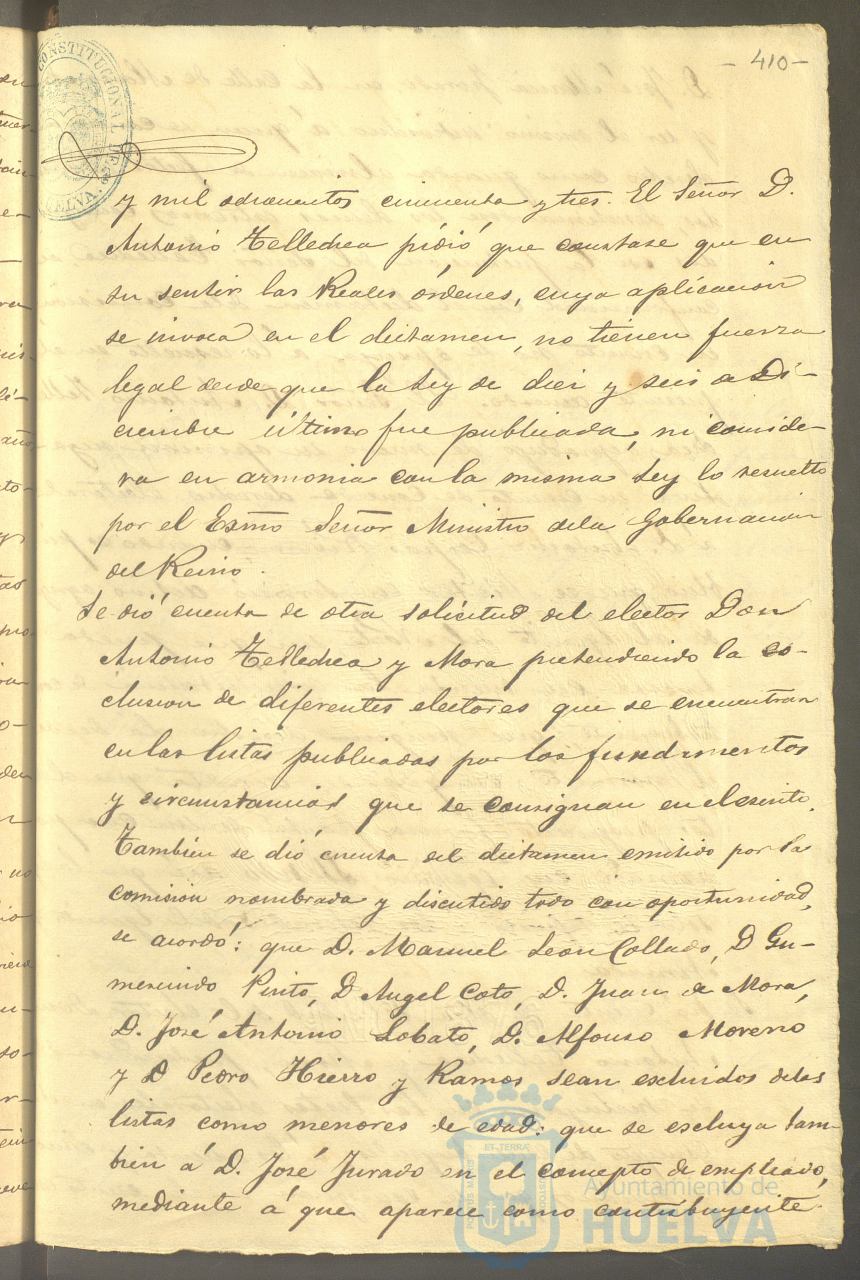 - 410 -
CONSTITUCIONAL DE
HUELVA.
y mil ochocientos cincuenta y tres. El Señor D.
Antonio Telledrea pidió que constase que en
su sentir las Reales órdenes, cuya aplicación
se invoca en el dictamen, no tienen fuerza
legal desde que la Ley de diez y seis de Di-
ciembre último fue publicada, ni conside-
ra en armonia con la misma Ley lo resuelto
por el Exmo Señor Ministro dela Gobernacion
del Reino.
Se dió cuenta de otra solicitud del elector Don
Antonio Telledrea y Mora pretendiendo la es-
clusion de diferentes electores que se encuentran
en las listas publicadas por los fundamentos
y circunstancias que se consignan en el escrito.
Tambien se dió cuenta del dictamen emitido por la
comision nombrada y discutido todo con oportunidad,
se acordó: que D. Manuel Leon Collado, D Gu-
mersindo Pinto, D Angel Coto, D. Juan de Mora,
D. José Antonio Lobato, D. Alfonso Moreno
y D Pedro Hierro y Ramos, sean escluidos delas
listas como menores de edad: que se escluya tam-
bien á D. José Jurado en el concepto de empleado,
mediante á que aparece como contribuyente.
Ayuntamiento de
HUELVA